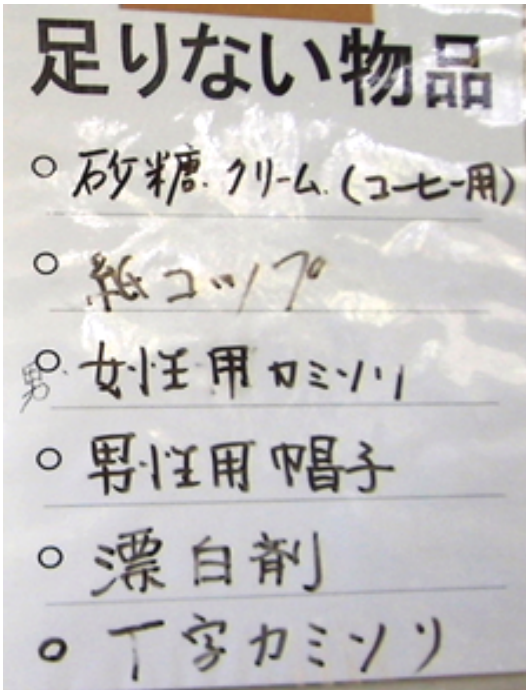 足りない物品
○ 砂糖.クリーム.(コーヒー用)
○ 紙コップ
男.○ 女性用カミソリ
○ 男性用帽子
○ 漂白剤
○ 丁字カミソリ